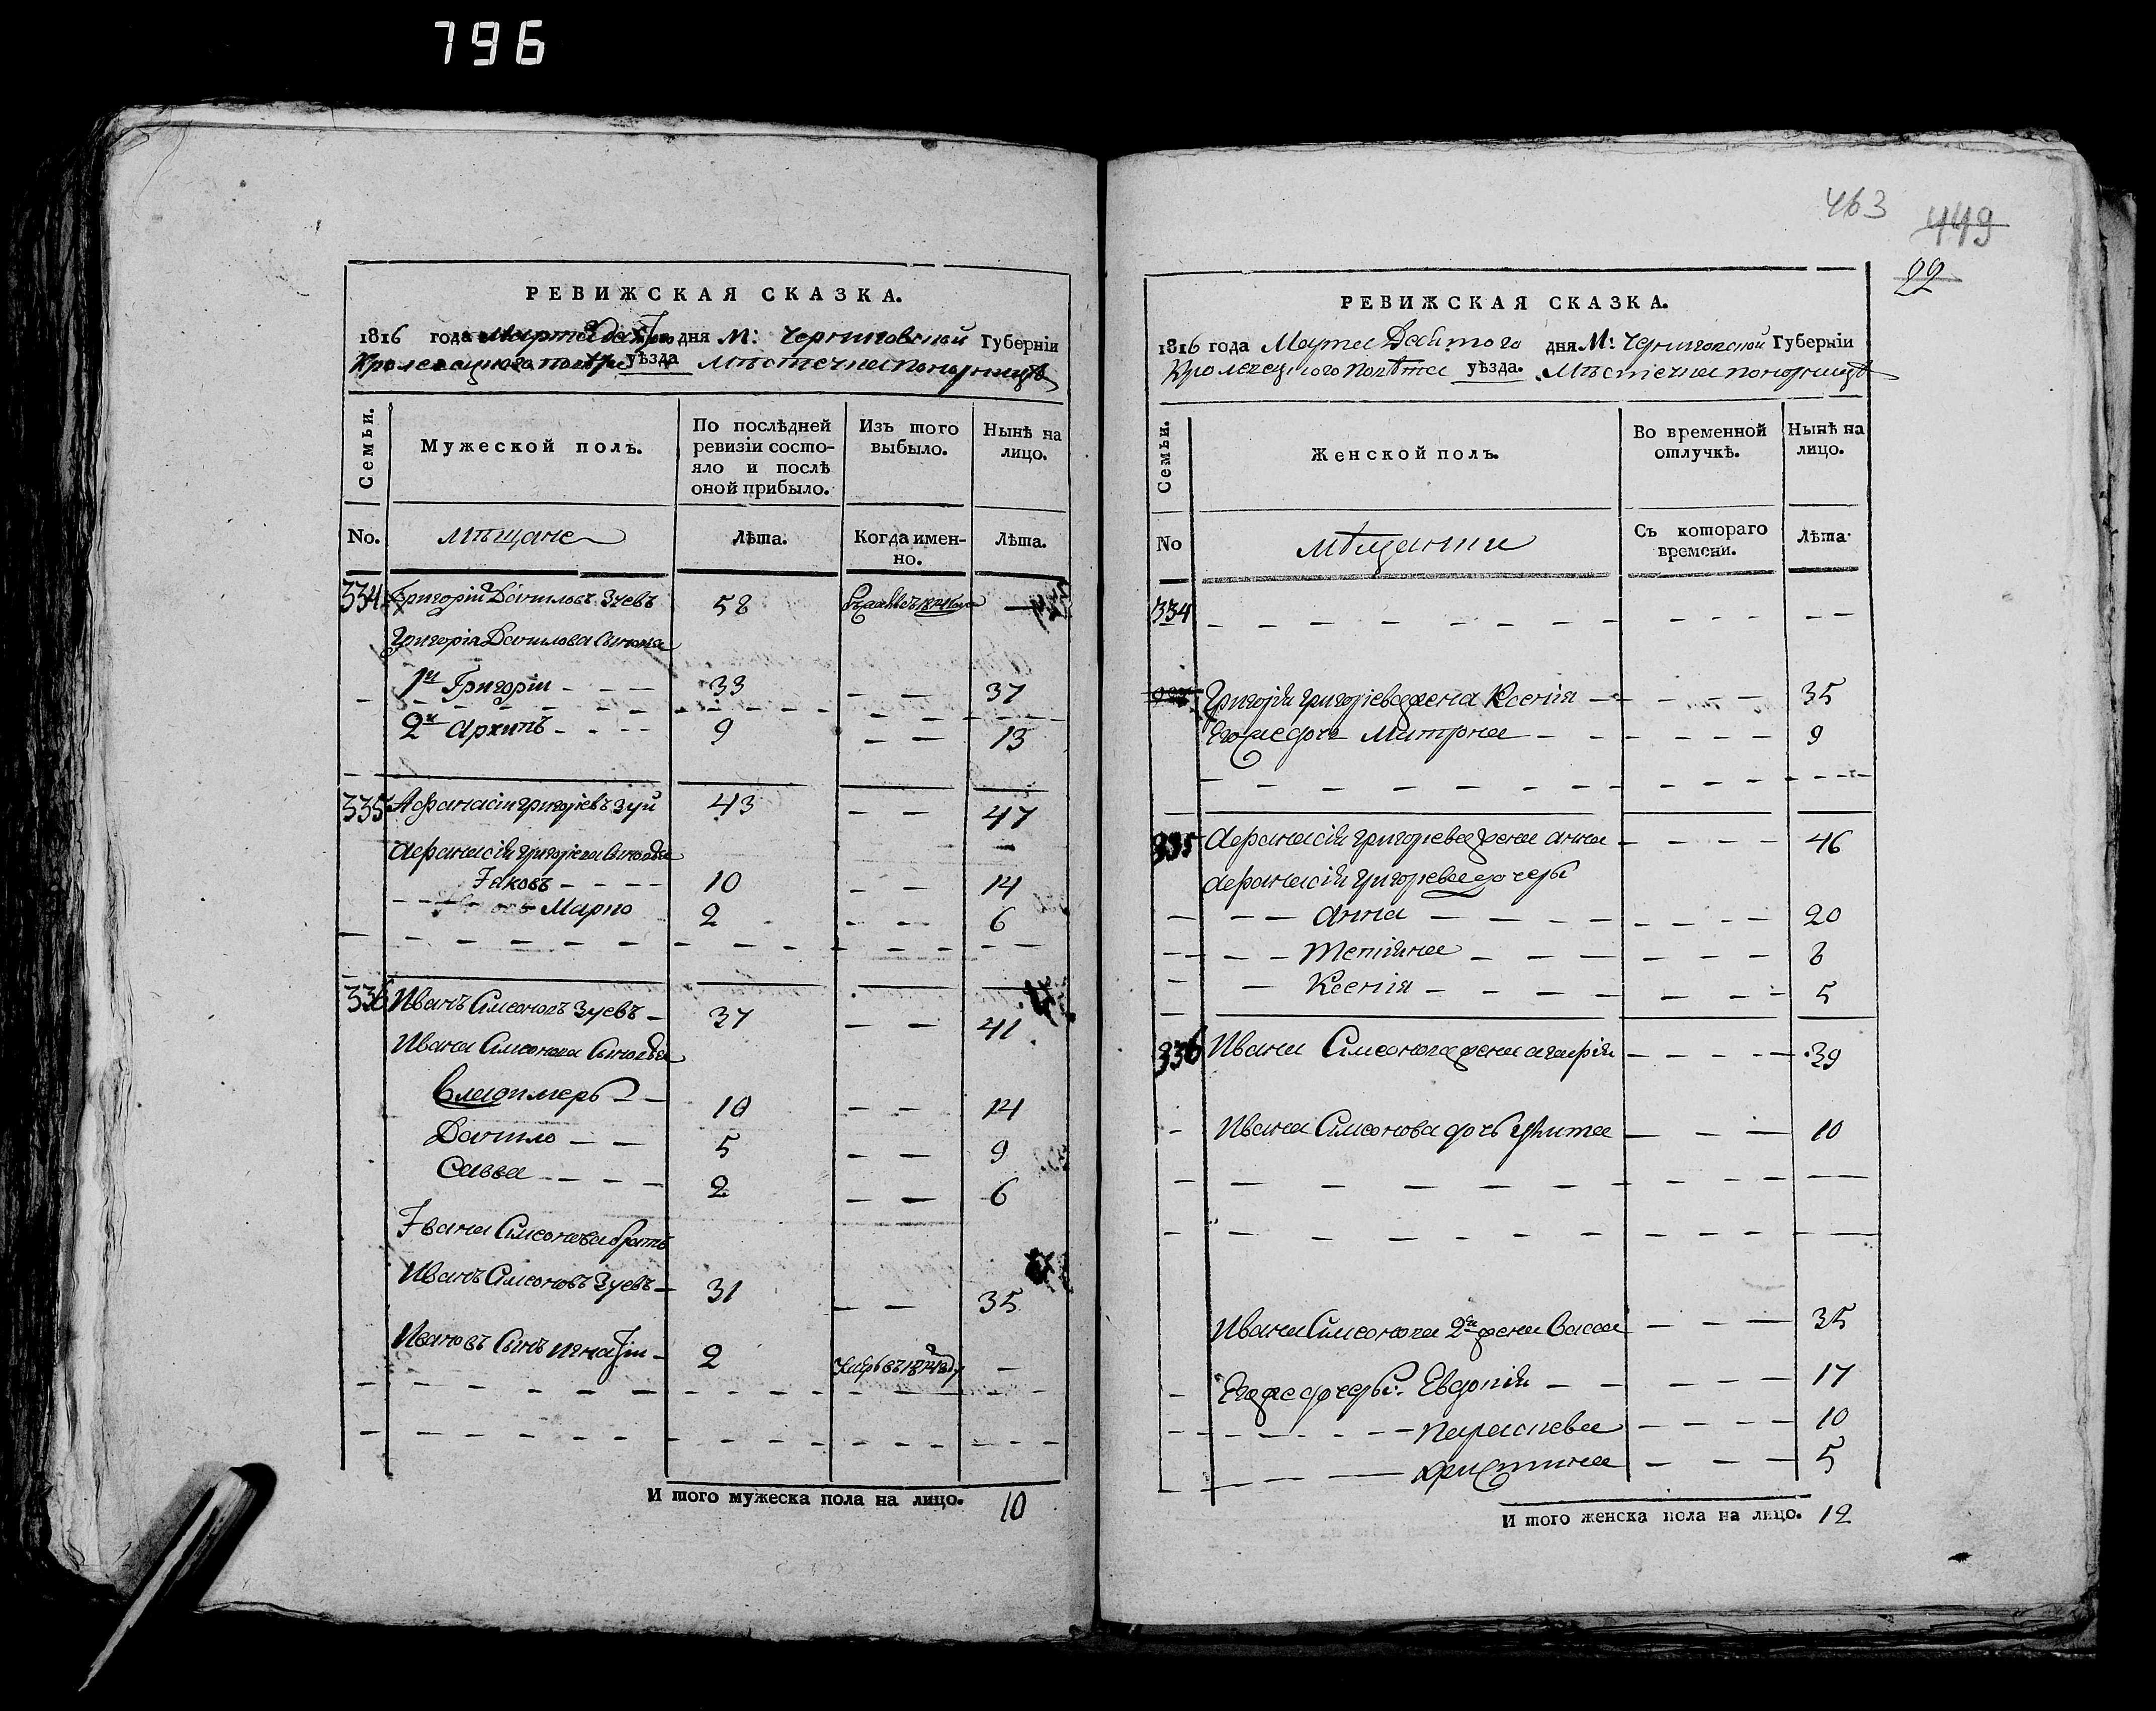 796
РЕВИЖСКАЯ СКАЗКА.
1816 года Марта дня М: Черниговской Губерніи
Кролевецкого уѣзда Мѣстечка Понорницѣ
Семьи.
Мужеской полъ.
По послѣдней ревизіи состояло и послѣ оной прибыло.
Изъ того выбыло.
Нынѣ на лицо.
No.
мѣщане
Лѣта.
Когда именно.
Лѣта.
334 Григорій Даниловъ Зуевъ 58 —
Григорія Данилова
1й Григорій - - - 33 — — 37
2й Архипъ - - - 9 — — 13
335 Афанасій григоріевъ Зуй 43 — — 47
Афанасія григоріева сыновья
Іаковъ - - - - 10 — — 14
Марко 2 - - - 6
336 Иванъ Симоновъ Зуевъ - 37 — — 41
Ивана Симонова Сыновья
Владимеръ - - 10 — — 14
Данило — — 5 — — 9
Савва - - - - 2 — — 6
Івана Симонова братъ
Иванъ Симоновъ Зуевъ - 31 — — 35
Ивановъ Сынъ Игнатій - 2 —
И того мужеска пола на лицо. 10
463
449
22
РЕВИЖСКАЯ СКАЗКА.
1816 года Марта Девятого дня М: Черниговской Губерніи
Кролевецкого Повѣта уѣзда. Мѣстечка Понорницѣ
Семьи.
Женской полъ.
Во временной отлучкѣ.
Нынѣ на лицо.
No
мѣщанки
Съ котораго времени.
Лѣта.
334
Григорія григоріева жена Ксенія — 35
Его же дочь Матрона — 9
335 Афанасія григорьева жена анна - 46
афанасія григорьева дочеры
— — анна — 20
— — — Татіяна — 8
— Ксенія — 5
336 Ивана Симонова жена агафія — 39
Ивана Симонова дочь Улита — 10
Ивана Симонова 2й жена Васса — 35
Его же дочеры: Евдокія — 17
Параскева — 10
христина — 5
И того женска пола на лицо. 12